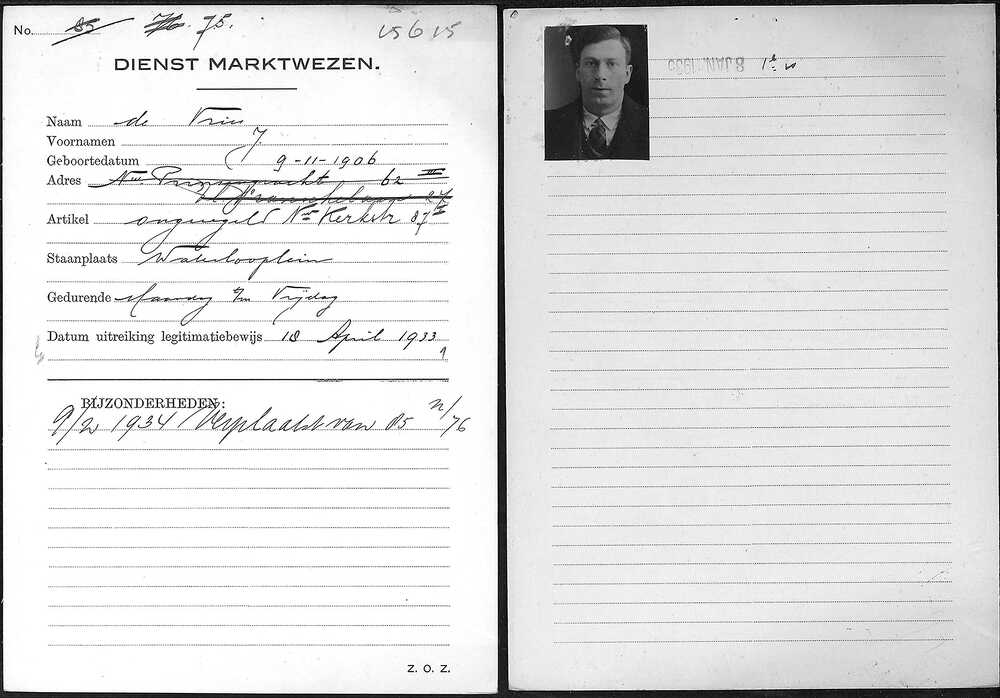 No. 85 76. 75.
15615
DIENST MARKTWEZEN.
Naam de Vries
Voornamen J.
Geboortedatum 9-11-1906
Adres Nwe. Prinsengracht 62 III
27
Artikel ongeregeld Nwe Kerkstr 87 I
Staanplaats Waterlooplein
Gedurende Maandag t/m Vrijdag
Datum uitreiking legitimatiebewijs 18 April 1933
BIJZONDERHEDEN:
9/2 1934 Verplaatst van 85 n/76
Z. O. Z.
8 JAN. 1935